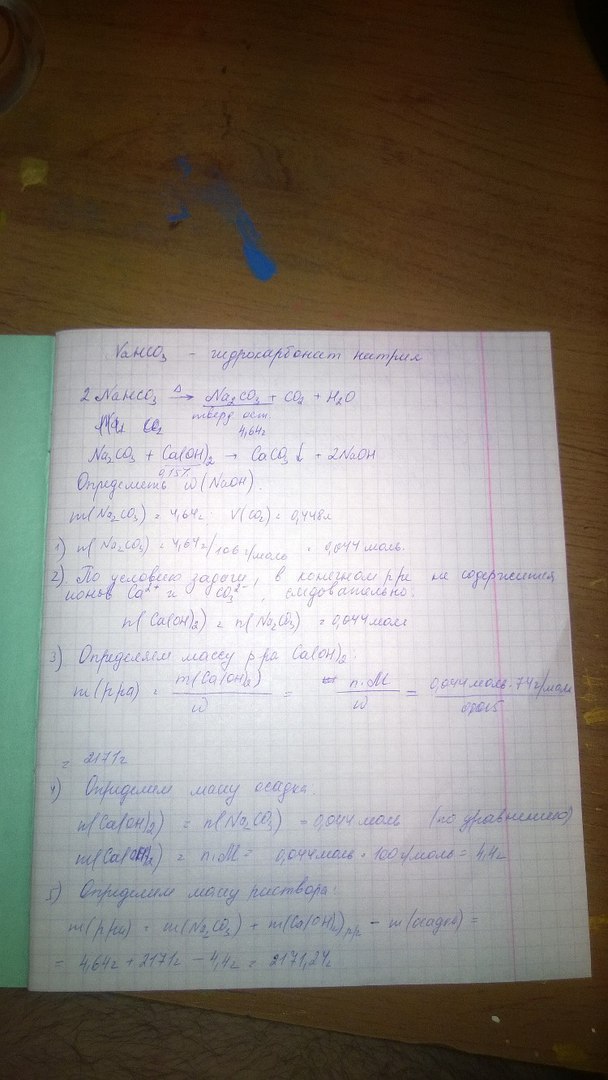 NaHCO₃ - гидрокарбонат натрия
2 NaHCO₃ →^Δ Na₂CO₃ + CO₂ + H₂O
тверд ост.
4,64г
Na₂CO₃ + Ca(OH)₂ → CaCO₃↓ + 2NaOH
0,15%
Определеть ω(NaOH).
m(Na₂CO₃) = 4,64г. V(CO₂) = 0,448л
1) n(Na₂CO₃) = 4,64г/106г/моль = 0,044 моль.
2). По условию задачи, в конечном р/ре не содержится
ионов Ca²⁺ и CO₃²⁻, следовательно:
n(Ca(OH)₂) = n(Na₂CO₃) = 0,044 моль
3) Определяем массу р-ра Ca(OH)₂:
m(р-ра) = m(Ca(OH)₂)/ω = n·M/ω = 0,044 моль·74г/моль/0,0015
= 2171г
4) Определяем массу осадка.
n(Ca(OH)₂) = n(Na₂CO₃) = 0,044 моль (по уравнению)
m(Ca(OH)₂) = n·M = 0,044 моль · 100г/моль = 4,4г
5) Определяем массу раствора:
m(р-ра) = m(Na₂CO₃) + m(Ca(OH)₂)р-р - m(осадка) =
= 4,64г + 2171г - 4,4г = 2171,24г